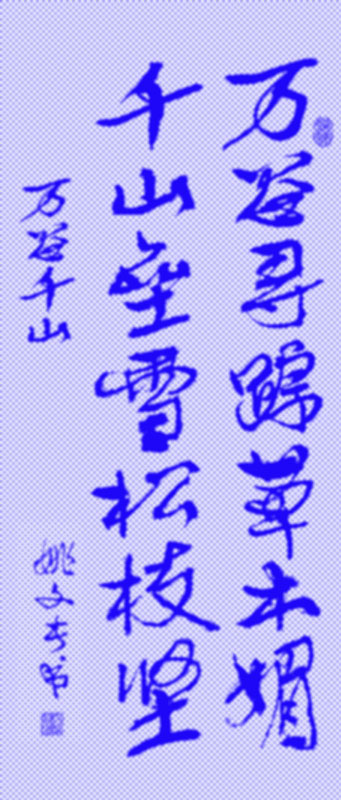 万壑寻踪草木媚
千山垒雪松枝坚
万壑千山
姚文书